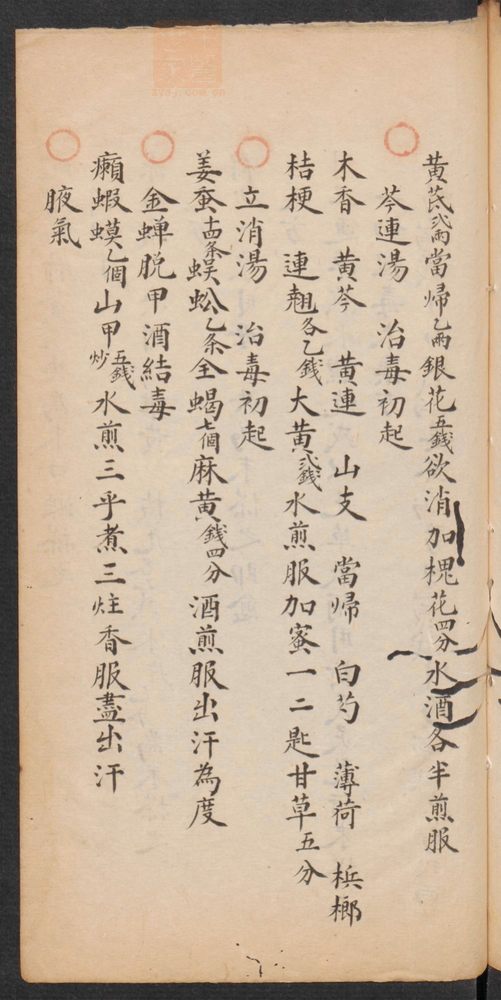 黃芪弍兩當歸乙兩銀花五錢欲消加槐花四分水酒各半煎服
芩連湯 治毒初起
木香 黃芩 黃連 山支 當歸 白芍 薄荷 梹榔
桔梗 連翹各乙錢大黃弍錢水煎服加蜜一二匙甘草五分
立消湯 治毒初起
姜蚕十四条蜈蚣乙条全蝎七個麻黃錢四分酒煎服出汗為度
金蟬脫甲酒結毒
癩蝦蟆乙個山甲五錢炒水煎三乎煮三炷香服蓋出汗
腋氣